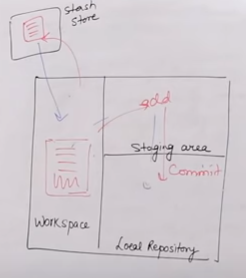 Stash
Store
add
Staging area
Commit
Workspace
Local Repository